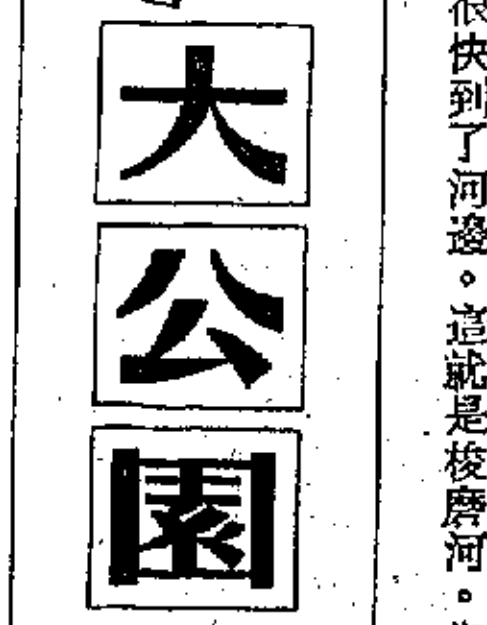 很快到了河邊。這就是梭磨河。
大公園